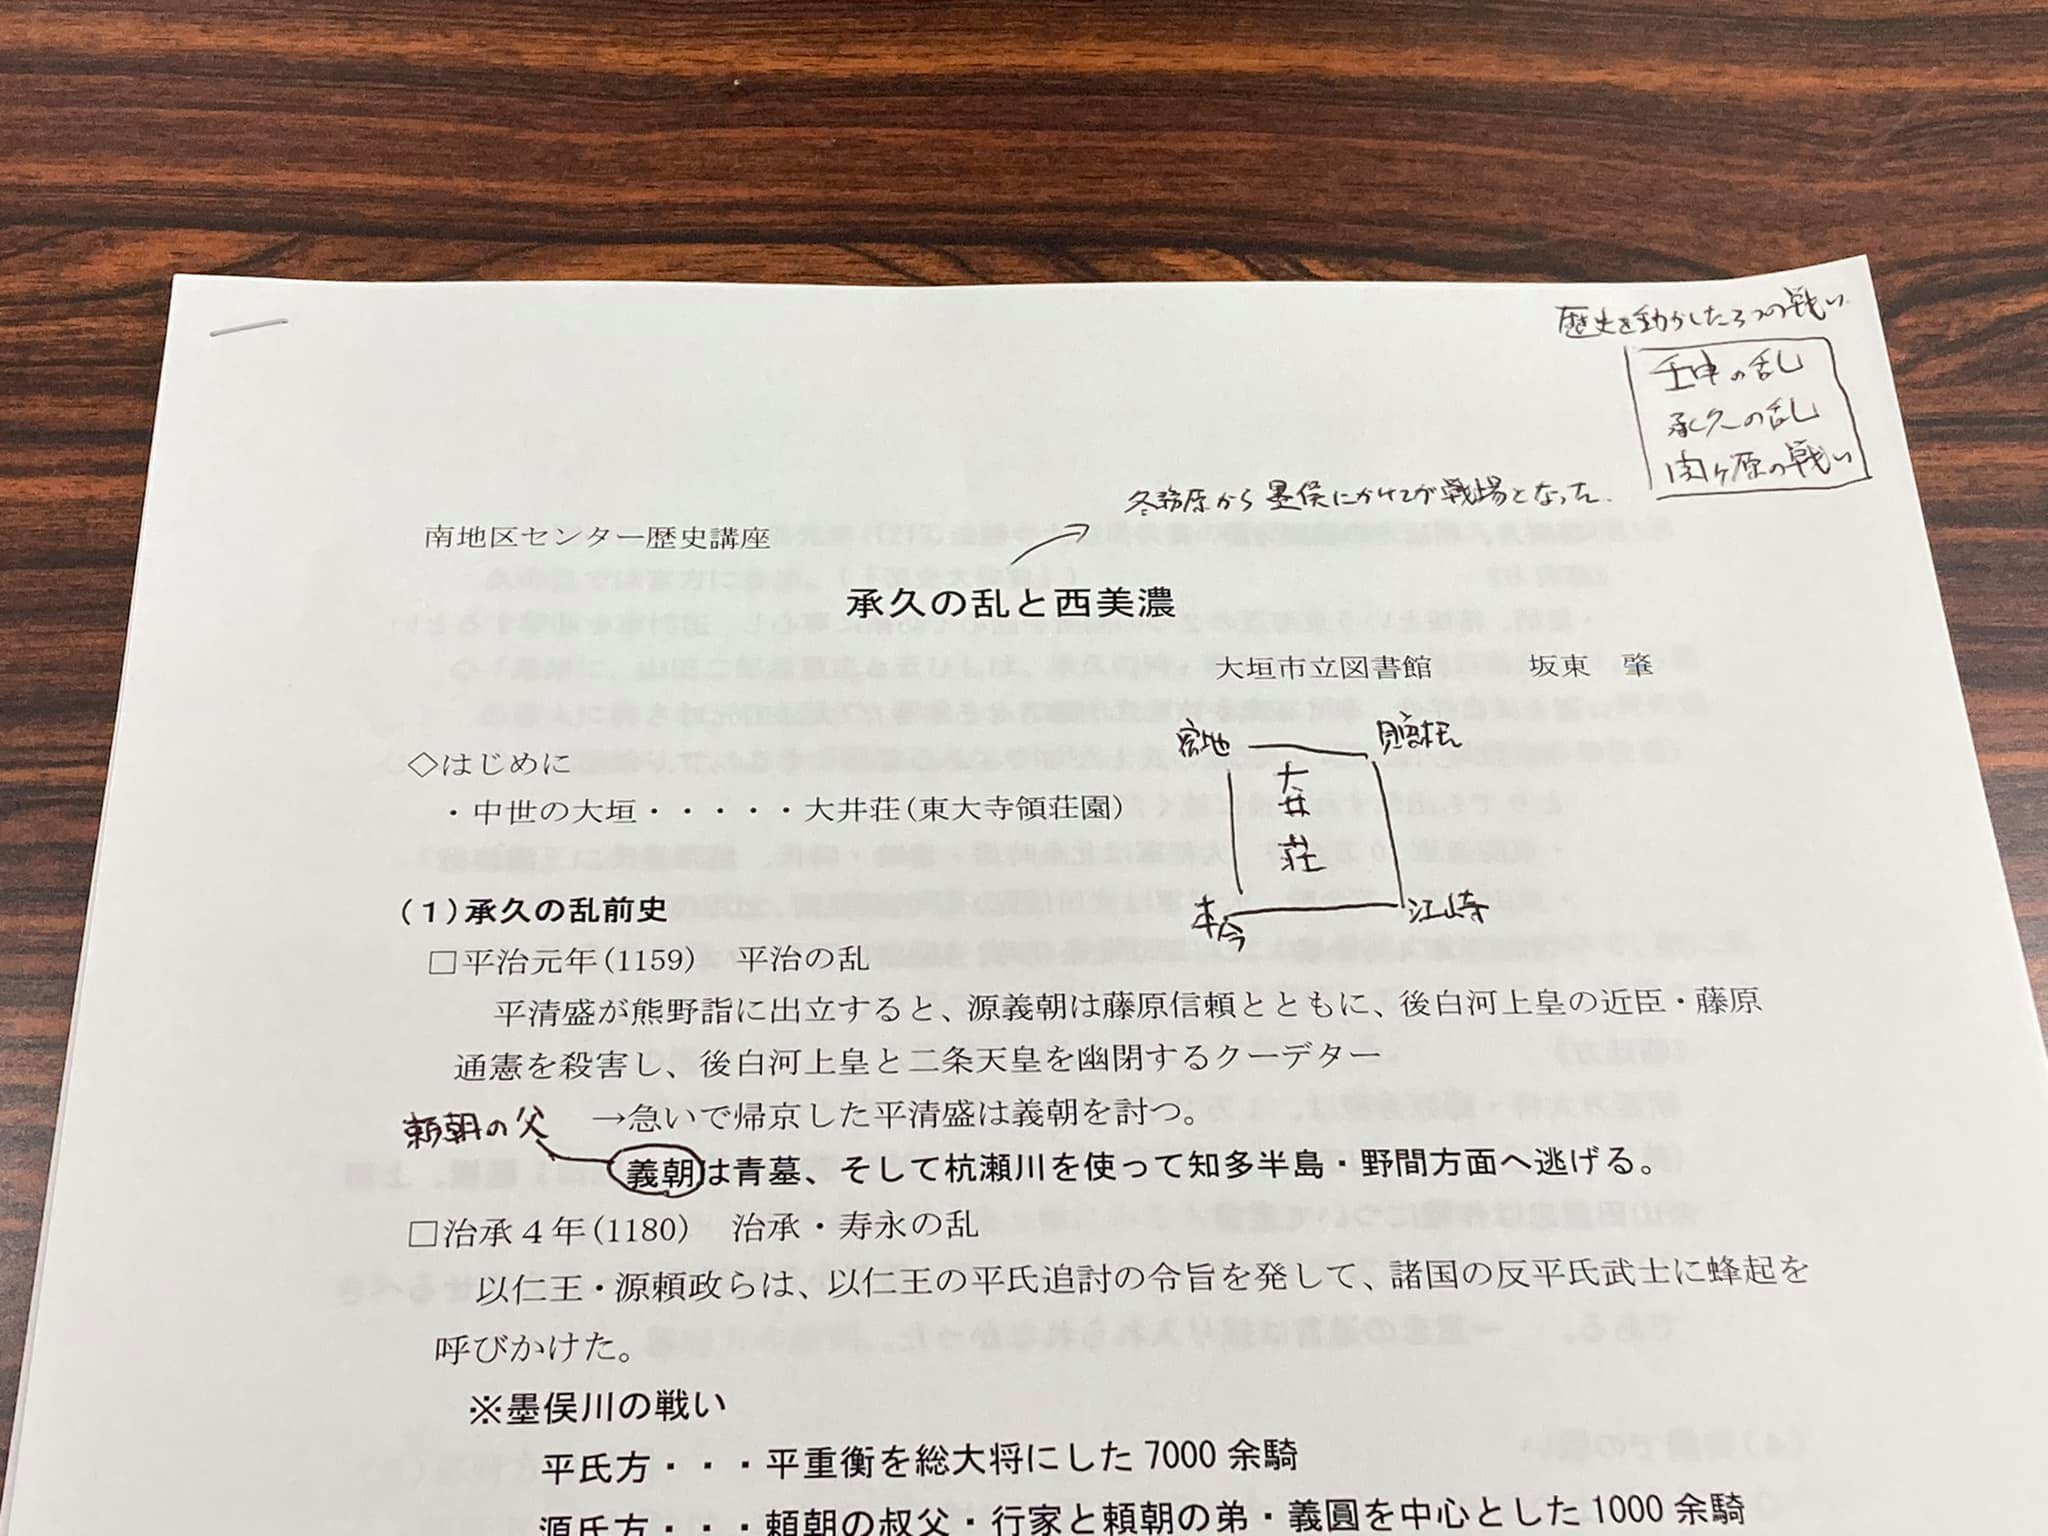 歴史を動かした3つの戦い
壬申の乱
承久の乱
関ヶ原の戦い
各務原から墨俣にかけてが戦場となった.
南地区センター歴史講座
承久の乱と西美濃
大垣市立図書館　坂東　肇
宮地
大井荘
本今
江崎
◇はじめに
・中世の大垣・・・・・大井荘(東大寺領荘園)
(1)承久の乱前史
□平治元年(1159)　平治の乱
平清盛が熊野詣に出立すると、源義朝は藤原信頼とともに、後白河上皇の近臣・藤原
通憲を殺害し、後白河上皇と二条天皇を幽閉するクーデター
→急いで帰京した平清盛は義朝を討つ。
頼朝の父
義朝は青墓、そして杭瀬川を使って知多半島・野間方面へ逃げる。
□治承4年(1180)　治承・寿永の乱
以仁王・源頼政らは、以仁王の平氏追討の令旨を発して、諸国の反平氏武士に蜂起を
呼びかけた。
※墨俣川の戦い
平氏方・・・平重衡を総大将にした7000余騎
源氏方・・・頼朝の叔父・行家と頼朝の弟・義圓を中心とした1000余騎